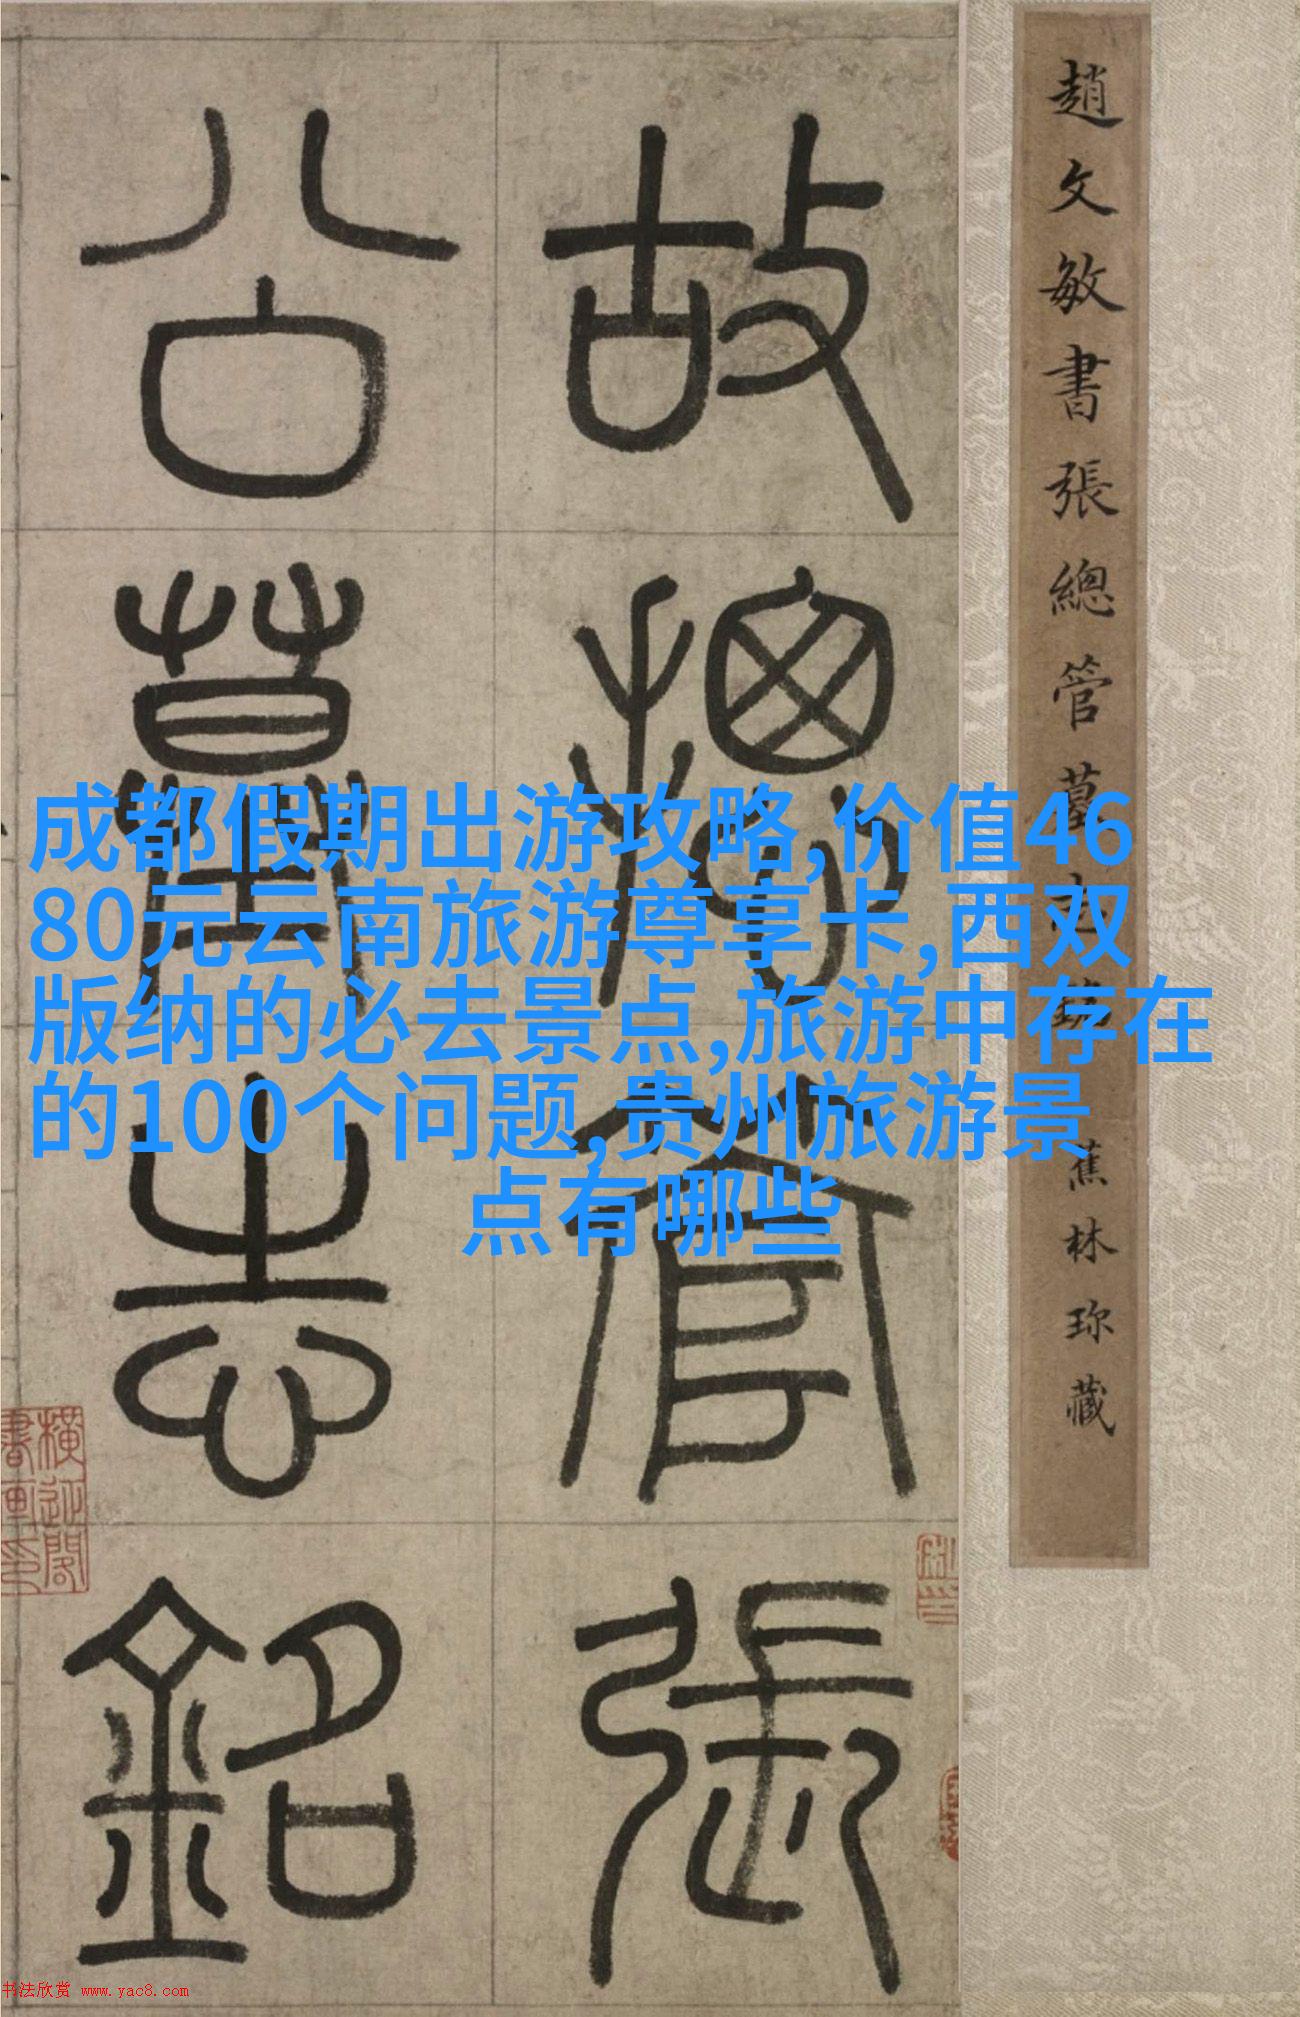 趙文敏書張總管墓志銘 蕉林珍藏
故摠管張
公墓志銘
成都假期出游攻略,价值46
80元云南旅游尊享卡,西双
版纳的必去景点,旅游中存在
的100个问题,贵州旅游景
点有哪些
书法欣赏 www.yac8.com